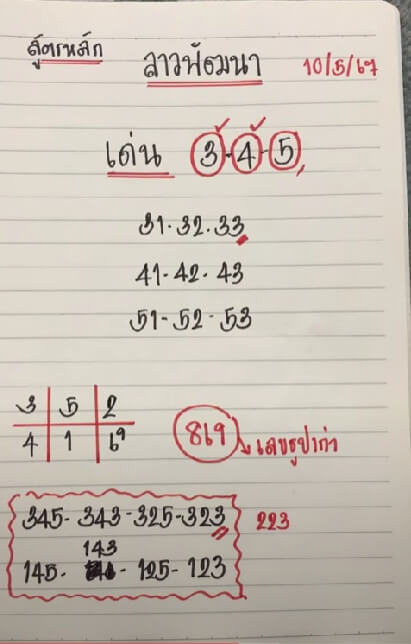 สูตรหลัก ลาวพัฒนา 10/5/67
เด่น 3-4-5
31-32-33
41-42-43
51-52-53
3 5 2
4 1 6
819 เลขธูปเก่า
345-343-325-323 223
143
145- -125-123